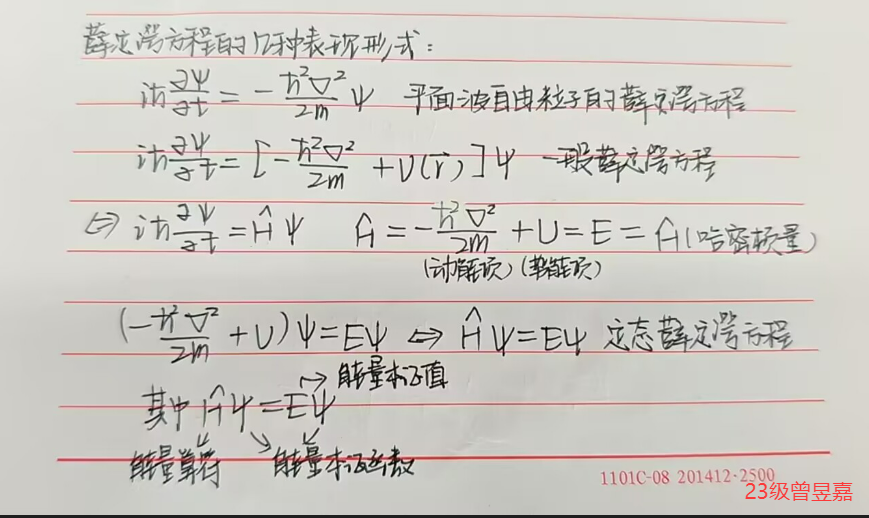 薛定谔方程的几种表现形式：
iℏ∂Ψ/∂t = -ℏ²∇²/2m Ψ 平面波自由粒子的薛定谔方程
iℏ∂Ψ/∂t = [-ℏ²∇²/2m + U(r⃗)]Ψ 一般薛定谔方程
⇔ iℏ∂Ψ/∂t = ĤΨ Ĥ = -ℏ²∇²/2m + U = E = Ĥ(哈密顿量)
(动能项) (势能项)
(-ℏ²∇²/2m + U)Ψ = EΨ ⇔ ĤΨ = EΨ 定态薛定谔方程
→ 能量本征值
其中 ĤΨ = EΨ
能量算符 能量本征函数
1101C-08 201412·2500
23级曾昱嘉